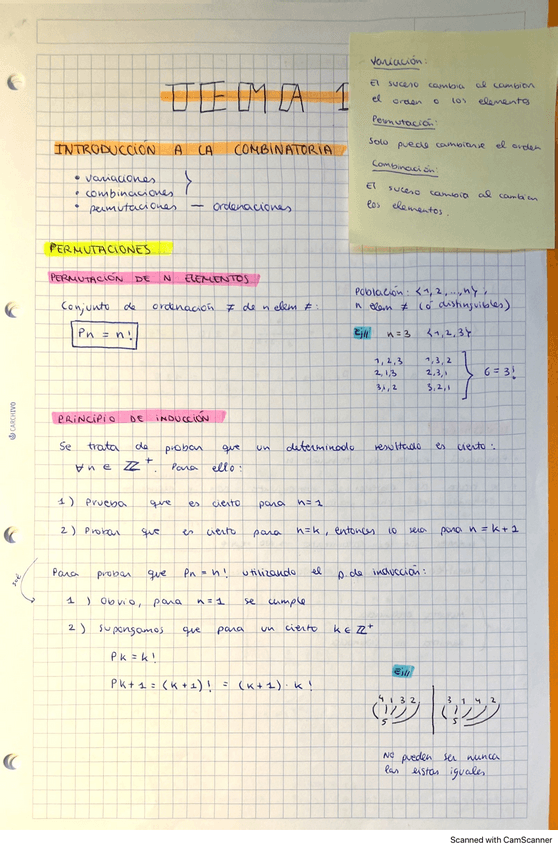 TEMA 1
Variación:
El suceso cambia al cambiar
el orden o los elementos
Permutación:
Solo puede cambiarse el orden
Combinación:
El suceso cambia al cambiar
los elementos.
INTRODUCCIÓN A LA COMBINATORIA
• variaciones }
• combinaciones
• permutaciones — ordenaciones
PERMUTACIONES
PERMUTACIÓN DE N ELEMENTOS
Conjunto de ordenación ≠ de n elem ≠:
Pn = n!
Población: {1, 2, ..., n},
n elem ≠ (ó distinguibles)
Ej// n=3 {1, 2, 3}
1, 2, 3 1, 3, 2
2, 1, 3 2, 3, 1 } 6 = 3!
3, 1, 2 3, 2, 1
PRINCIPIO DE INDUCCIÓN
Se trata de probar que un determinado resultado es cierto:
∀n ∈ ℤ⁺. Para ello:
1) Prueba que es cierto para n=1
2) Probar que es cierto para n=k, entonces lo sea para n=k+1
Para probar que Pn = n! utilizando el p. de inducción:
1) Obvio, para n=1 se cumple
2) Supongamos que para un cierto k ∈ ℤ⁺
Pk = k!
Pk+1 = (k+1)! = (k+1) · k!
Ej//
4 1 3 2 | 3 1 4 2
5 5
No pueden ser nunca
las listas iguales
CARCHIVO
Scanned with CamScanner